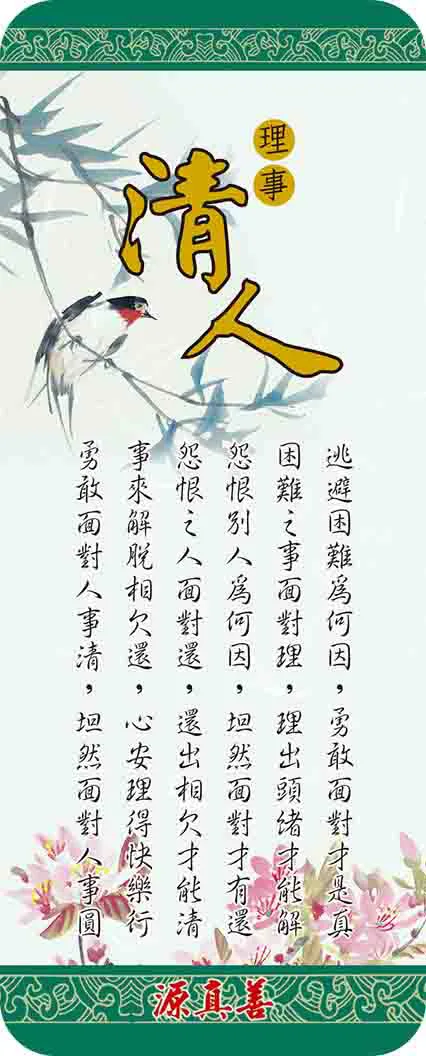 理事
清人
逃避困難為何因，勇敢面對才是真
困難之事面對理，理出頭緒才能解
怨恨別人為何因，坦然面對才有還
怨恨之人面對還，還出相欠才能清
事來解脫相欠還，心安理得快樂行
勇敢面對人事清，坦然面對人事圓
源真善